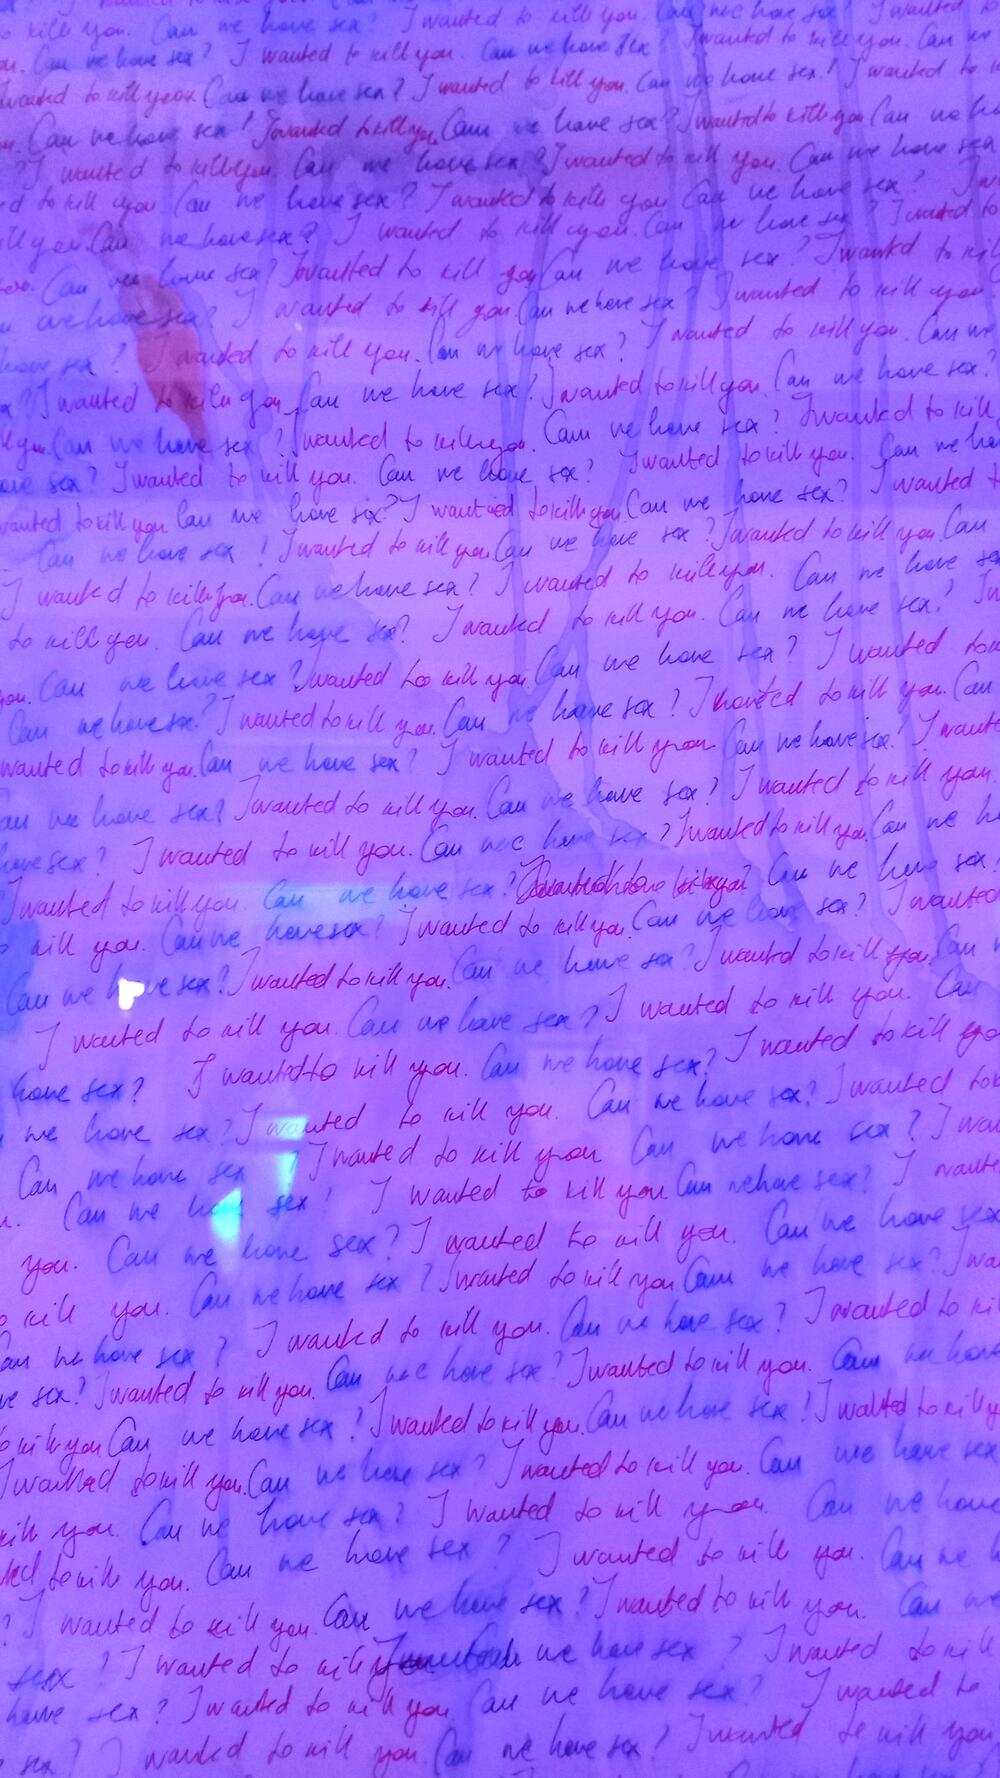 to kill you. Can we have sex? I wanted to kill you. Can we have sex? I wanted
you. Can we have sex? I wanted to kill you. Can we have sex? I wanted to kill you. Can we
wanted to kill you. Can we have sex? I wanted to kill you. Can we have sex! I wanted to k
Can we have sex! I wanted to kill you. Can we have sex? I wanted to kill you Can we ha
? I wanted to kill you. Can we have sex? I wanted to kill you. Can we have sex
ed to kill you Can we have sex? I wanted to kill you Can we have sex? I w
ill you. Can we have sex? I wanted to kill you. Can we have sex? I wanted to
Can we have sex? I wanted to kill you Can we have sex? I wanted to kill
we have sex? I wanted to kill you. Can we have sex? I wanted to kill you.
have sex? I wanted to kill you. Can we have sex? I wanted to kill you. Can we
x? I wanted to kill you Can we have sex? I wanted to kill you. Can we have sex?
ll you. Can we have sex? I wanted to kill you. Can we have sex? I wanted to kill
ave sex? I wanted to kill you. Can we have sex? I wanted to kill you. Can we ha
wanted to kill you. Can we have sex? I wanted to kill you. Can we have sex? I wanted t
Can we have sex! I wanted to kill you. Can we have sex? I wanted to kill you. Can
I wanted to kill you. Can we have sex? I wanted to kill you. Can we have se
to kill you. Can we have sex? I wanted to kill you. Can we have sex? I w
you. Can we have sex? I wanted to kill you. Can we have sex? I wanted to
Can we have sex? I wanted to kill you. Can we have sex? I to kill you. Can
wanted to kill you. Can we have sex? I wanted to kill you Can we have sex? I wante
an we have sex? I wanted to kill you. Can we have sex? I wanted to kill you.
have sex? I wanted to kill you. Can we have sex? I wanted to kill you. Can we h
I wanted to kill you. Can we have sex? Can we have sex?
kill you. Can we have sex? I wanted to kill you. Can we have sex? I wanted
Can we have sex? I wanted to kill you. Can we have sex? I wanted to kill you. Can
I wanted to kill you. Can we have sex? I wanted to kill you. Can
have sex? I wanted to kill you. Can we have sex? I wanted to kill yo
we have sex? I wanted to kill you. Can we have sex? I wanted to
Can we have sex ? I wanted to kill you Can we have sex? I wan
Can we have sex! I wanted to kill you Can we have sex? I wante
you. Can we have sex? I wanted to kill you. Can we have sex
o kill you. Can we have sex? I wanted to kill you. Can we have sex? I wa
an we have sex? I wanted to kill you. Can we have sex? I wanted to ki
ve sex? I wanted to kill you. Can we have sex? I wanted to kill you. Can we have
o kill you Can we have sex! I wanted to kill you. Can we have sex! I wanted to kill y
I wanted to kill you. Can we have sex? I wanted to kill you. Can we have sex
kill you. Can we have sex? I wanted to kill you. Can we have
ted to kill you. Can we have sex? I wanted to kill you. Can we h
? I wanted to kill you. Can we have sex? I wanted to kill you. Can we
sex! I wanted to kill we have sex? I wanted to kill
have sex? I wanted to kill you Can we have sex? I wanted to
sex? I wanted to kill you. Can we have sex? I wanted to kill you